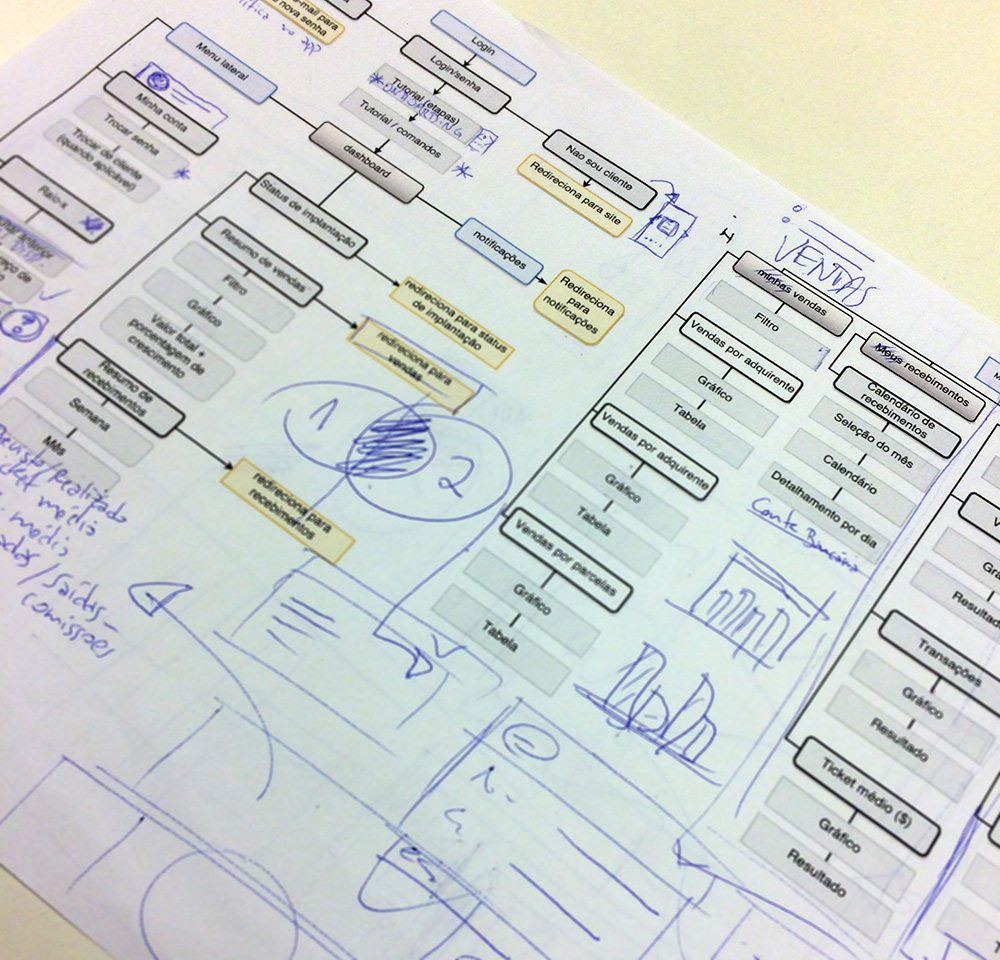 e-mail para
nova senha
Login
Login/senha
Tutorial (etapas)
ONBOARDING
Tutorial / comandos
Menu lateral
Minha conta
Trocar senha
Trocar de cliente
(quando aplicável)
Raio-x
dashboard
Nao sou cliente
Redireciona para site
notificações
Redireciona
para
notificações
Status de implantação
redireciona para status
de implantação
Resumo de vendas
Filtro
Gráfico
Valor total +
porcentagem de
crescimento
redireciona para
vendas
Resumo de
recebimentos
Semana
Mês
redireciona para
recebimentos
1
2
médio
médio
/ Saídas -
comissões
VENDAS
minhas vendas
Filtro
Vendas por adquirente
Gráfico
Tabela
Vendas por adquirente
Gráfico
Tabela
Vendas por parcelas
Gráfico
Tabela
Meus recebimentos
Calendário de
recebimentos
Seleção do mês
Calendário
Detalhamento por dia
Conta Bancária
Transações
Gráfico
Resultado
Ticket médio ($)
Gráfico
Resultado